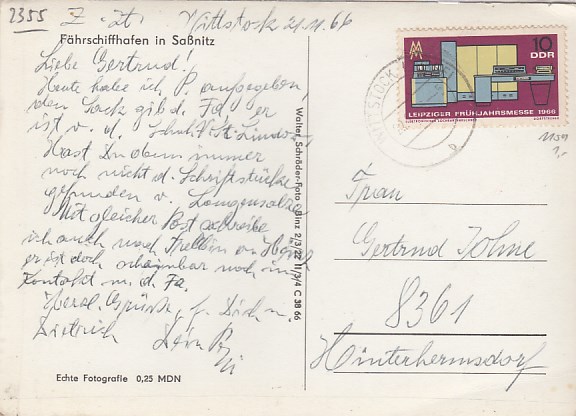 2355 Z. Zt. Wittstock 21.11.66
Fährschiffhafen in Saßnitz
Liebe Gertrud!
Heute habe ich P. aufgegeben
den Sack gib d. Fa. er
ist v. d.
Hast Du denn immer
noch nicht d. Schriftstücke
gefunden v. Langensalza
Mit gleicher Post schreibe
ich auch nach
er ist doch scheinbar noch in
Kontakt m. d. Fa.
Herzl. Grüße
Dietrich Dein
Echte Fotografie 0,25 MDN
Walter Schröder-Foto Binz 2/3/22 II/3/4 C 38 66
10
DDR
LEIPZIGER FRÜHJAHRSMESSE 1966
1159
1,-
Frau
Gertrud Johne
8361
Hinterhermsdorf